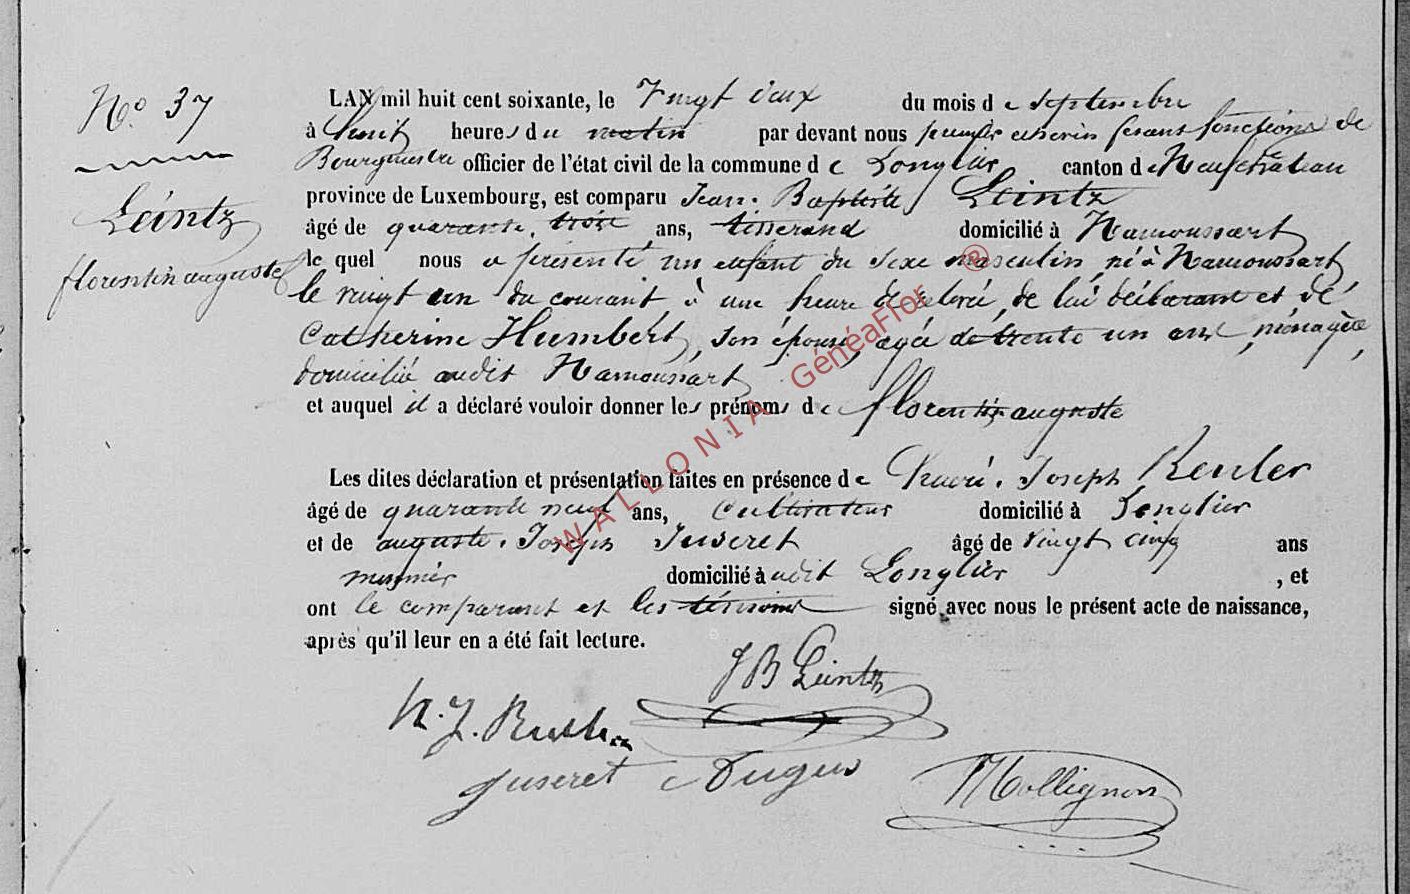 No. 37
Leintz
florentin auguste
LAN mil huit cent soixante, le Vingt deux du mois de septembre
à huit heures du matin par devant nous premier échevin fesant fonctions de
Bourgmestre officier de l'état civil de la commune de Longlier canton de Neufchateau
province de Luxembourg, est comparu Jean-Baptiste Leintz
âgé de quarante-trois ans, tisserand domicilié à Hamoussart
le quel nous a présenté un enfant du sexe masculin, né à Hamoussart
le vingt un du courant à une heure de relevée, de lui déclarant et de
Catherine Humbert, son épouse, agée de trente un ans, ménagère,
domiciliée audit Hamoussart
et auquel il a déclaré vouloir donner les prénoms de florentin auguste
Les dites déclaration et présentation faites en présence de Joseph Reuler
âgé de quarante neuf ans, cultivateur domicilié à Longlier
et de auguste-Joseph Juseret âgé de vingt cinq ans
meunier domicilié audit Longlier, et
ont le comparant et les témoins signé avec nous le présent acte de naissance,
après qu'il leur en a été fait lecture.
JB Leintz
Juseret Augus
WALLONIA GénéaFlor ®